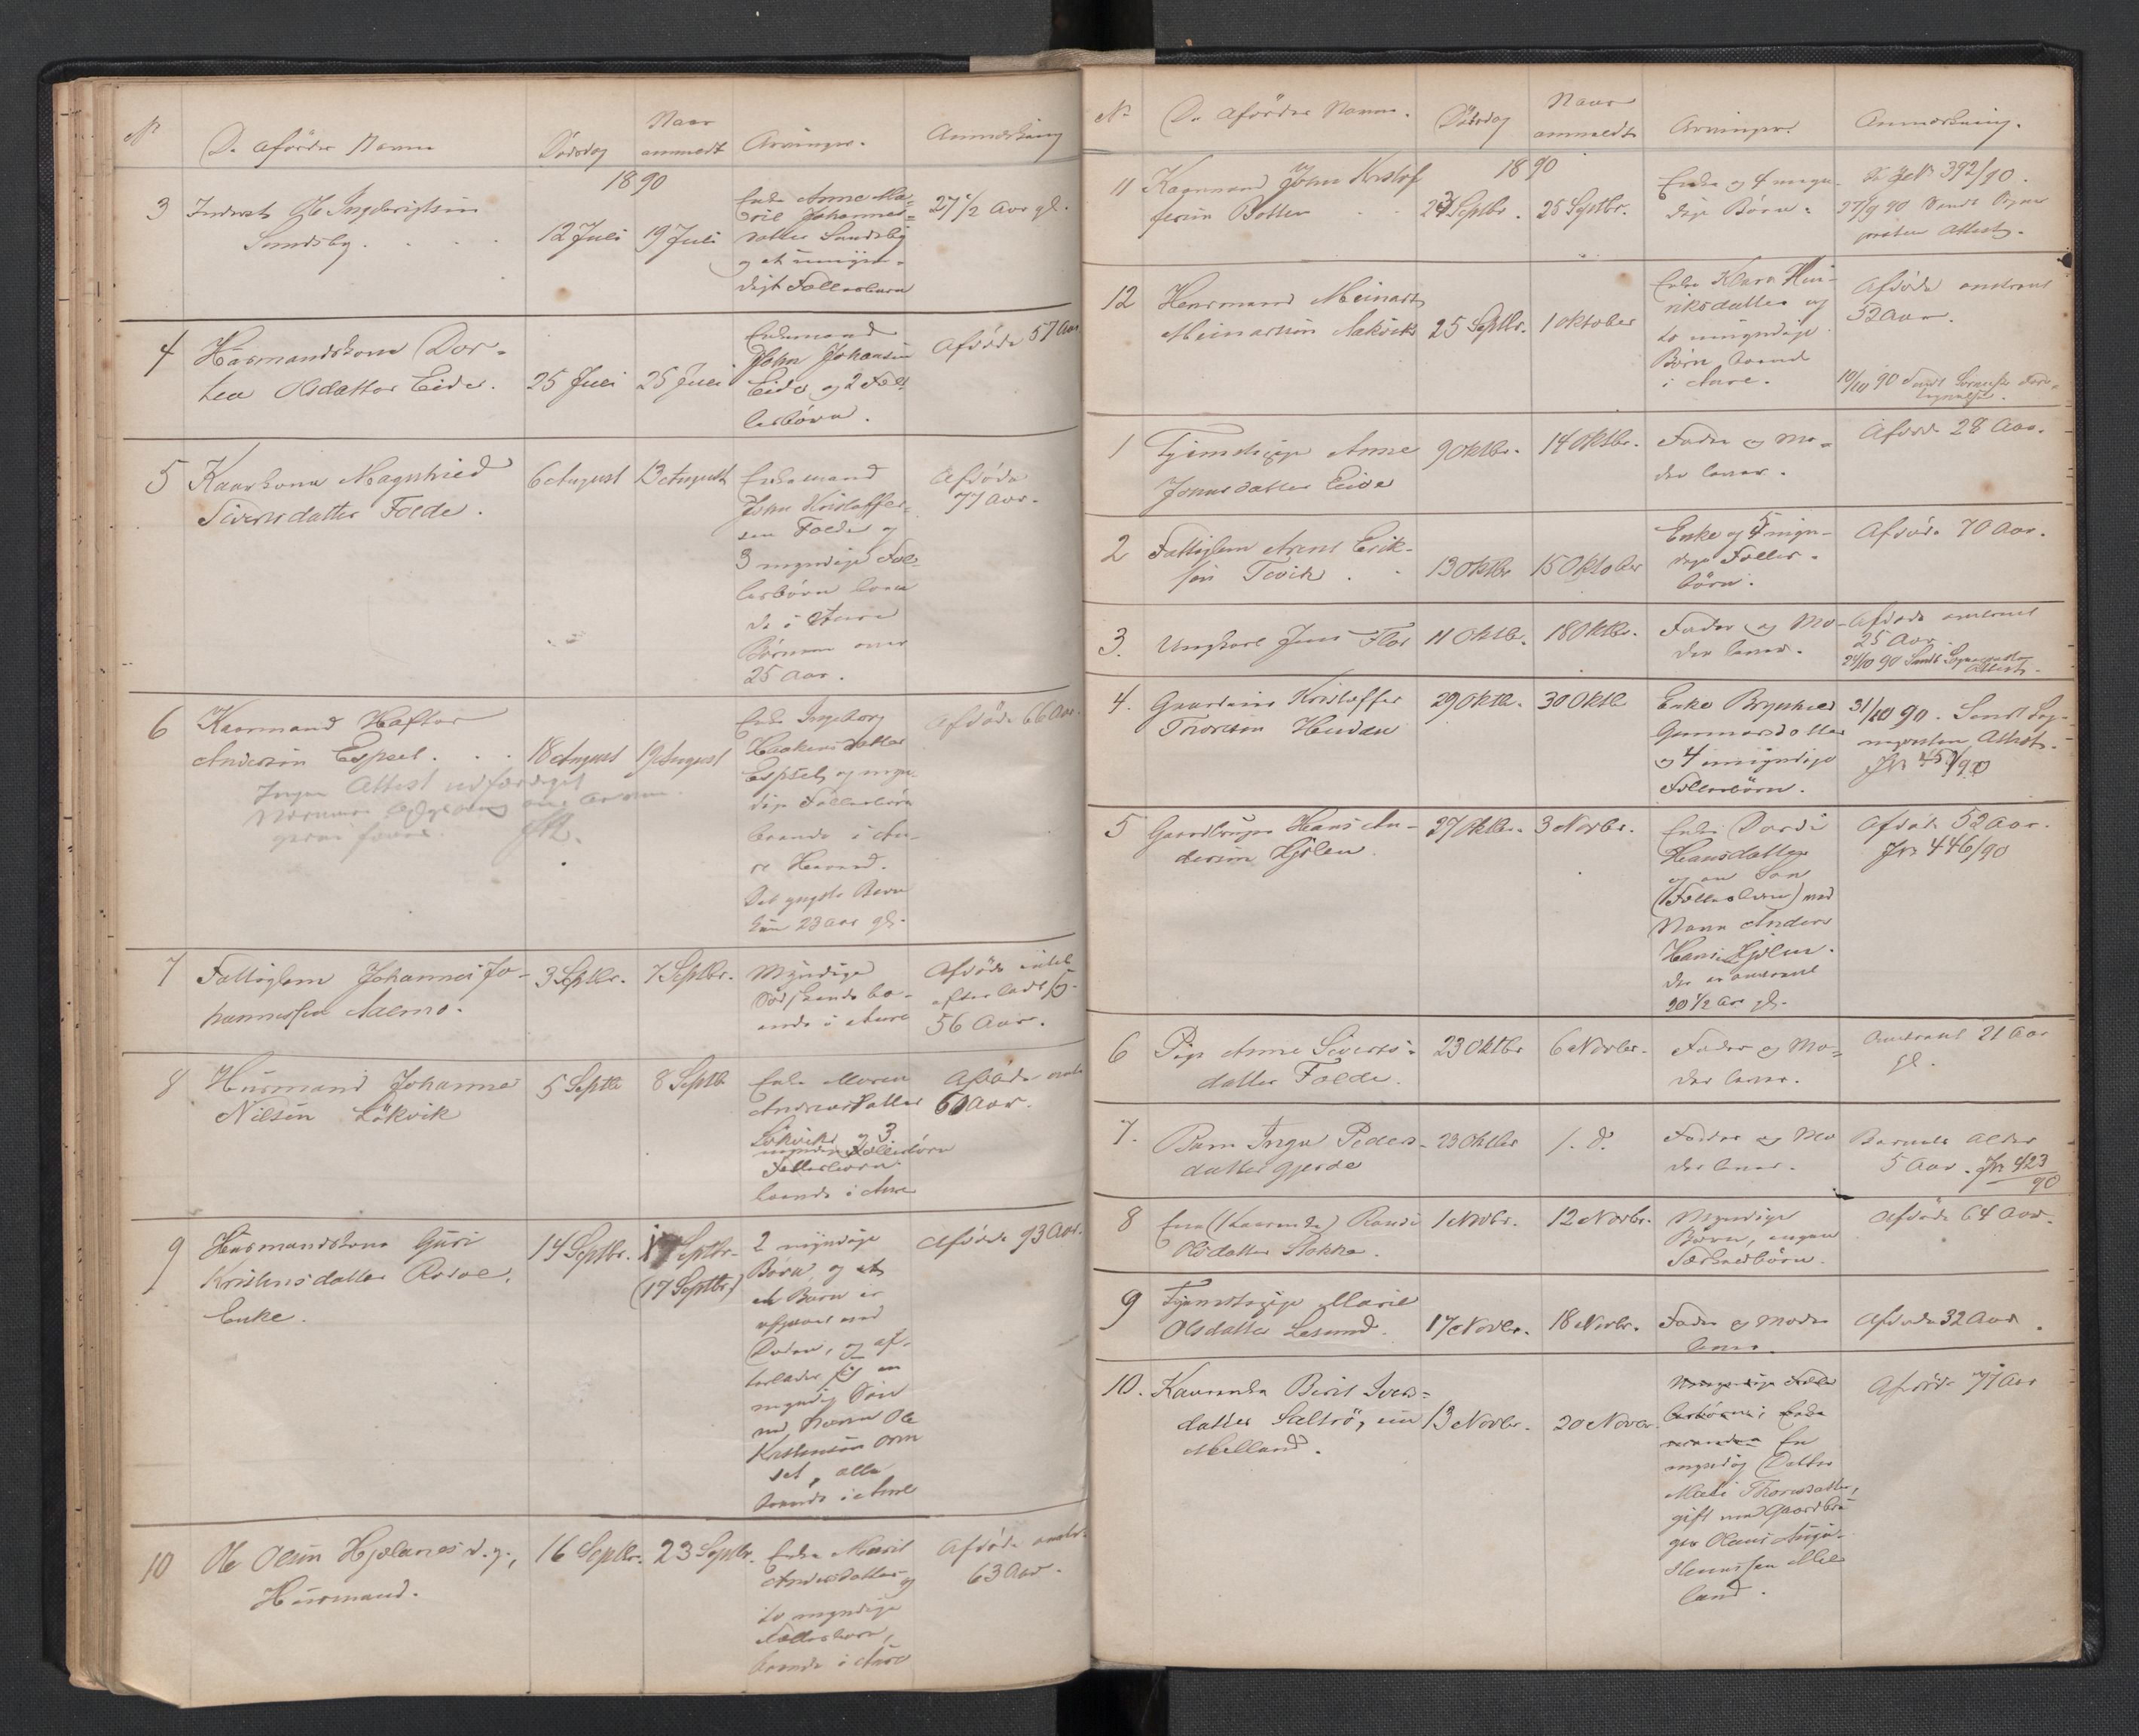 No
De afdødes Navne
Dødsdag
Naar
anmeldt
Arvinger.
Anmærkning
1890
3 Inderst Ole Ingebrigtsen
Sundsby.
12 Juli
19 Juli
Enke Anne Ma-
rie Johannes-
datter Sundsby
og et umyn-
digt Fællesbarn
27 1/2 Aar gl.
4 Husmandskone Dor-
tea Olsdatter Eide.
25 Juli
25 Juli
Enkemand
John Johansen
Eide og 2 Fæl-
lesbørn.
Afdøde 57 Aar
5 Kaarkone Magnhild
Siversdatter Folde.
6 August
13 August
Enkemand
John Kristoffer-
sen Folde og
3 myndige Fæl-
lesbørn boen-
de i Aure
Børnene over
25 Aar.
Afdøde
77 Aar.
6 Kaarmand Haftor
Andersen Espset.
18 August
19 August
Enke Ingeborg
Haakensdatter
Espset og myn-
dige Fællesbørn
boende i Au-
re Herred.
Det yngste Barn
kun 23 Aar gl.
Afdøde 66 Aar.
Ingen Attest udfærdiget
7 Fattiglem Johannes Jo-
hannessen Aalmo.
3 Septbr.
7 Septbr.
Myndige
Sødskende bo-
ende i Aure
Afdøde intet
efterladt sig.
56 Aar.
8 Husmand Johannes
Nilsen Løkvik
5 Septb
8 Septb
Enke Maren
Andreasdatter
Løkvik og 3
myndige Fællesbørn
Fællesbørn
boende i Aure
Afdøde
60 Aar.
9 Husmandskone Guri
Kristensdatter Rodal,
Enke.
14 Septbr.
17 Septbr.
(17 Septbr)
2 myndige
Børn, og et
et Barn er
afgaaet ved
Døden, og ef-
terlader sig en
myndig Søn
ved Navn Ole
Kristensen Orm
set, alle
boende i Aure
Afdøde 93 Aar.
10 Ole Olsen Hjelanes d.y.,
Husmand.
16 Septbr.
23 Septbr.
Enke Marit
Andersdatter og
to myndige
Fællesbørn,
boende i Aure
Afdøde omtr.
63 Aar.
No
De afdødes Navne.
Dødsdag
Naar
anmeldt
Arvinger.
Anmærkning.
1890
11 Kaarmand John Kristof
fersen Botten
24 Septbr.
25 Septbr.
Enke og 4 myn-
dige Børn.
Se JNo 392/90.
27/9 90 Sendt Sogne
presten Attest.
12 Husmand Meinart
Meinartsen Aakvik
25 Septbr.
1 Oktober
Enke Karen Hen-
riksdatter og
to umyndige
Børn boende
i Aure.
Afdøde omtrent
52 Aar.
1 Tjenestepige Anne
Jonasdatter Eide
9 Oktbr.
14 Oktbr.
Fader og Mo-
der lever.
Afdøde 28 Aar.
2 Fattiglem Arent Erik-
sen Tevik
13 Oktbr
15 Oktober
Enke og 5 myn-
dige Fælles-
børn.
Afdøde 70 Aar.
3. Ungkarl Jens Flor
11 Oktbr.
18 Oktbr.
Fader og Mo-
der lever.
Afdøde omtrent
25 Aar
24/10 90 Sendt Sognepresten
Attest.
4. Gaardmand Kristoffer
Thoresen Hendset
29 Oktb.
30 Oktb
Enke Brynhild
Gunnarsdatter
og 4 umyndige
Fællesbørn.
31/10 90. Sendt Sog-
nepresten Attest.
5 Gaardbruger Hans An-
dersen Gjølen.
27 Oktbr.
3 Novbr.
Enke Dordi
Hansdatter
og en Søn
(Fællesbarn) ved
Navn Anders
Hansen Gjølen.
der er omtrent
20 1/2 Aar gl.
Afdøde 52 Aar.
JNo 446/90
6 Pige Anne Siverts-
datter Folde.
23 Oktbr
6 Novbr.
Fader og Mo-
der lever.
Omtrent 21 Aar
gl.
7. Barn Inga Peders-
datter Gjerde
23 Oktbr
s. d.
Fader og Mo
der lever.
Barnets Alder
5 Aar. JNo 423
90
8 Enke (Kaarenke) Randi
Olsdatter Stokke.
1 Novbr.
12 Novbr.
Myndige
Børn, ingen
Særkuldbørn.
Afdøde 64 Aar.
9 Tjenestepige Marit
Olsdatter Lesund.
17 Novbr.
18 Novbr.
Fader og Moder
lever.
Afdøde 32 Aar.
10. Kaarenke Berit Ivers-
datter Saltrø, nu
Melland.
13 Novbr.
20 Novbr.
Myndige Fæl
lesbørn; Enke
En
myndig Datter
Mali Thoresdatter,
gift med Gaardbru
ger Olaus Mogn-
Henriksen Mel
land.
Afdøde 77 Aar